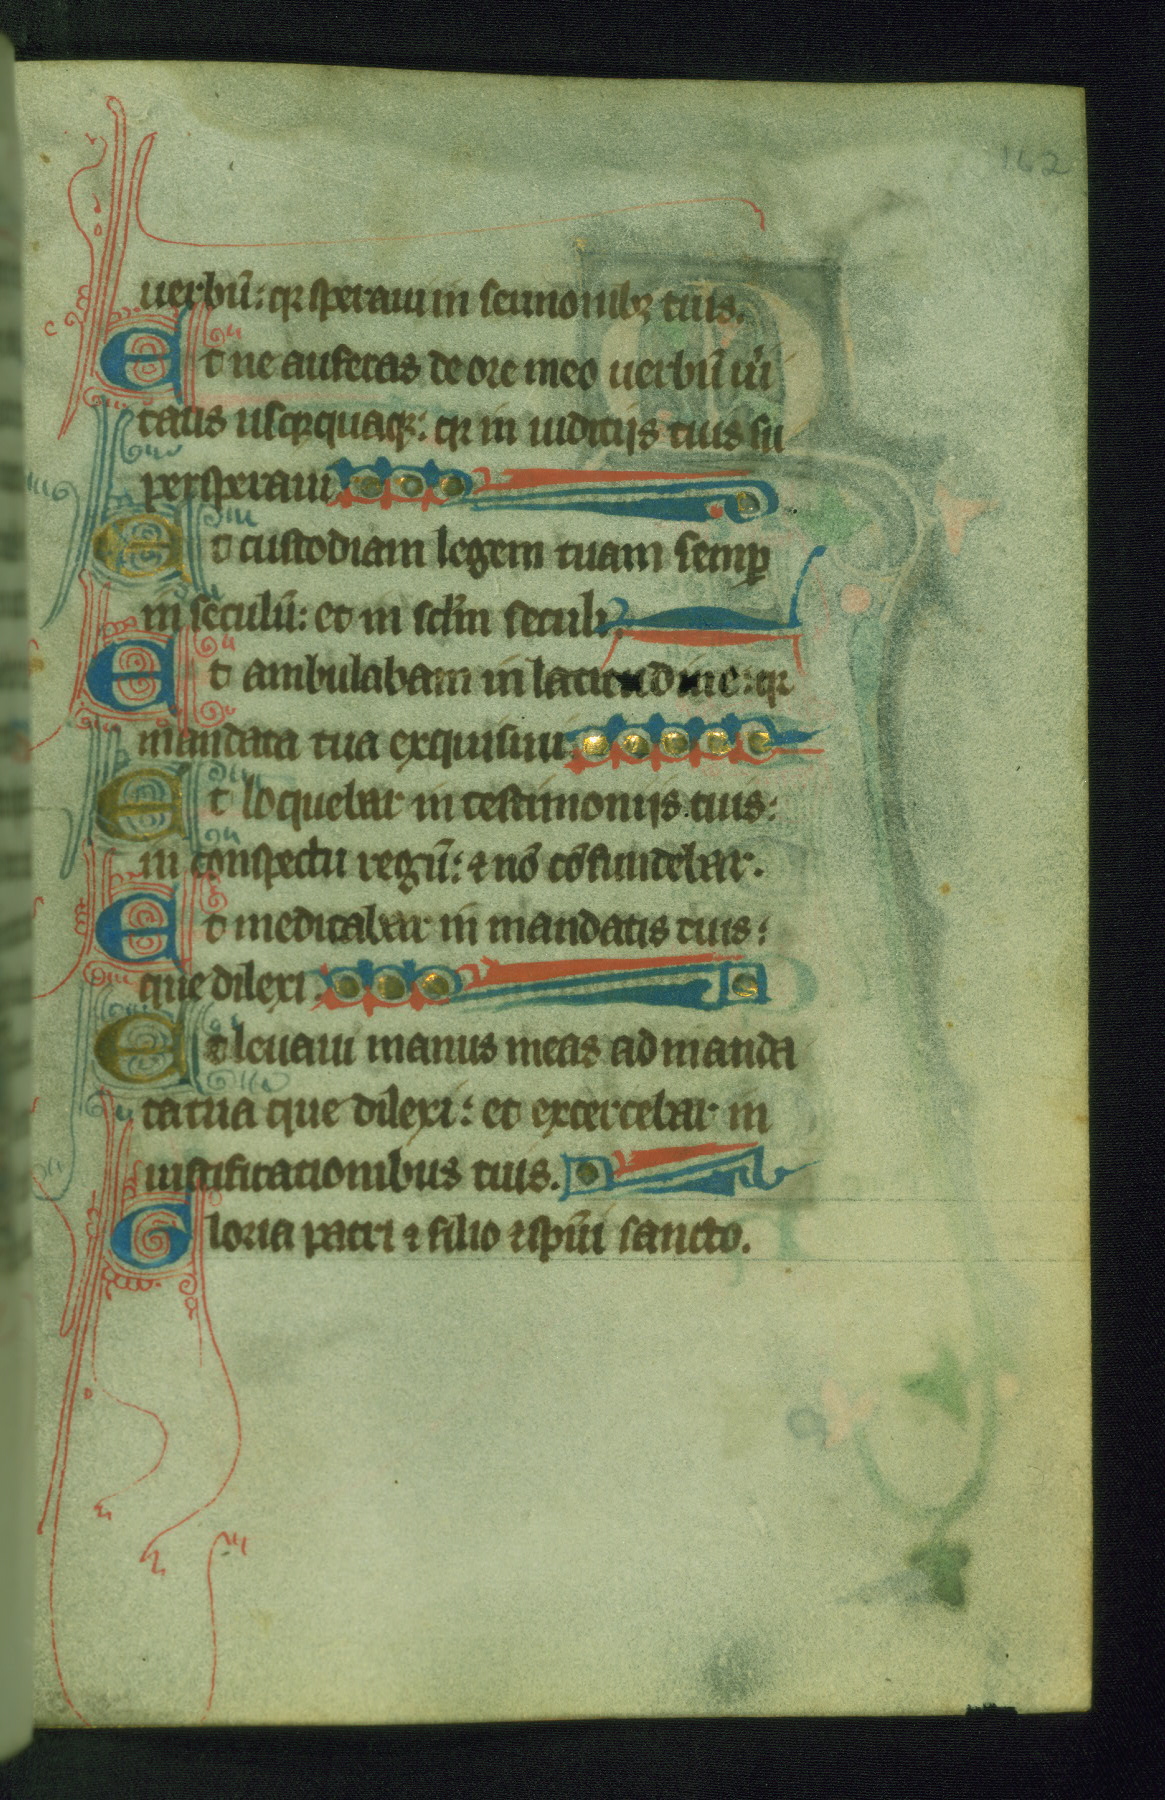 162
uerbū: qr speraui in sermonibꝫ tuis.
Et ne auferas de ore meo uerbū ui̾
tatis usqꝫquaqꝫ: qr in iudicijs tuis su
persperaui
Et custodiam legem tuam semꝑ
in seculū: et in sclm̄ seculi.
Et ambulabam in latitudine: qr
mandata tua exquisiui
Et loquebar in testimonijs tuis:
in conspectu regū: ⁊ nō cōfundebar.
Et meditabar in mandatis tuis:
que dilexi.
Et leuaui manus meas ad manda
ta tua que dilexi: et excercebar in
iustificationibus tuis.
Gloria patri ⁊ filio ⁊ spūi sancto.